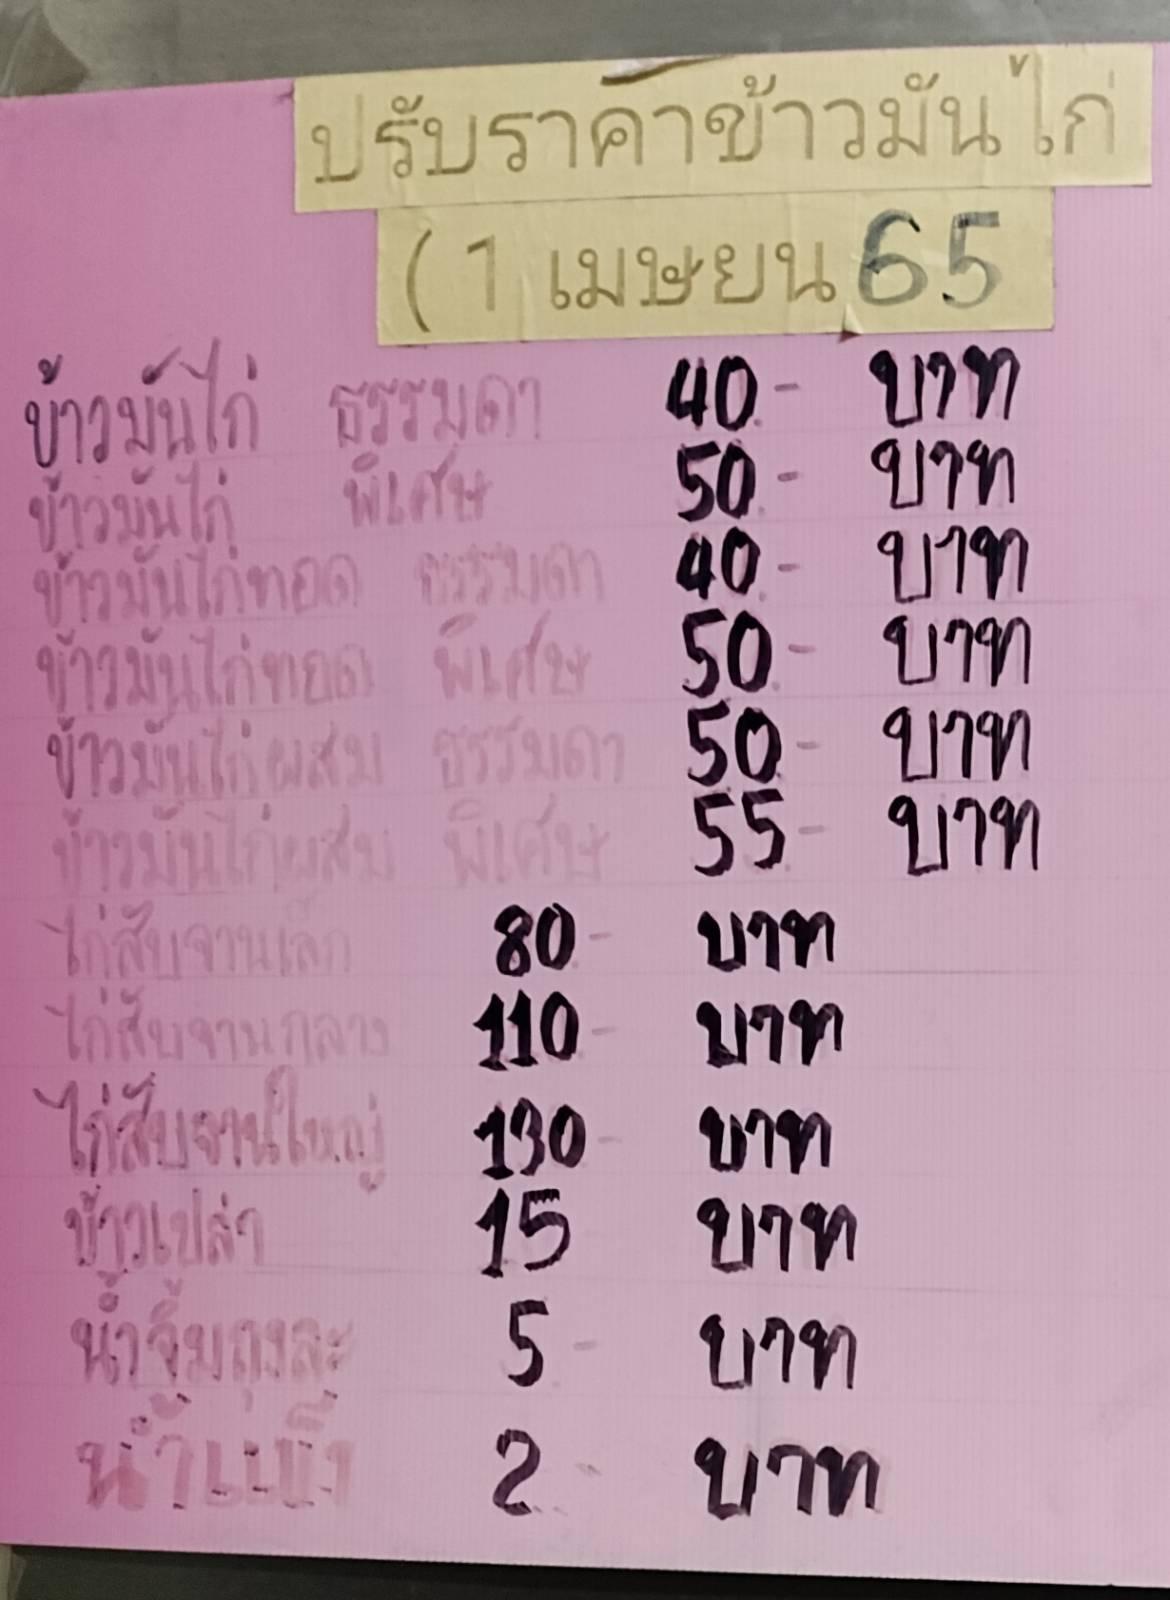 ปรับราคาข้าวมันไก่
(1 เมษยน 65
ข้าวมันไก่ ธรรมดา 40.- บาท
ข้าวมันไก่ พิเศษ 50.- บาท
ข้าวมันไก่ทอด ธรรมดา 40.- บาท
ข้าวมันไก่ทอด พิเศษ 50- บาท
ข้าวมันไก่ผสม ธรรมดา 50- บาท
ข้าวมันไก่ผสม พิเศษ 55- บาท
ไก่สับจานเล็ก 80- บาท
ไก่สับจานกลาง 110- บาท
ไก่สับจานใหญ่ 130- บาท
ข้าวเปล่า 15 บาท
น้ำจิ้มถุงละ 5- บาท
น้ำแข็ง 2.- บาท